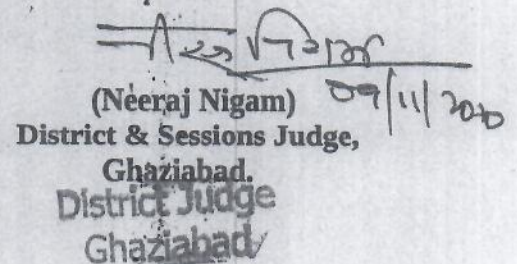 नीरज निगम
09/11/2020
(Neeraj Nigam)
District & Sessions Judge,
Ghaziabad.
District Judge
Ghaziabad